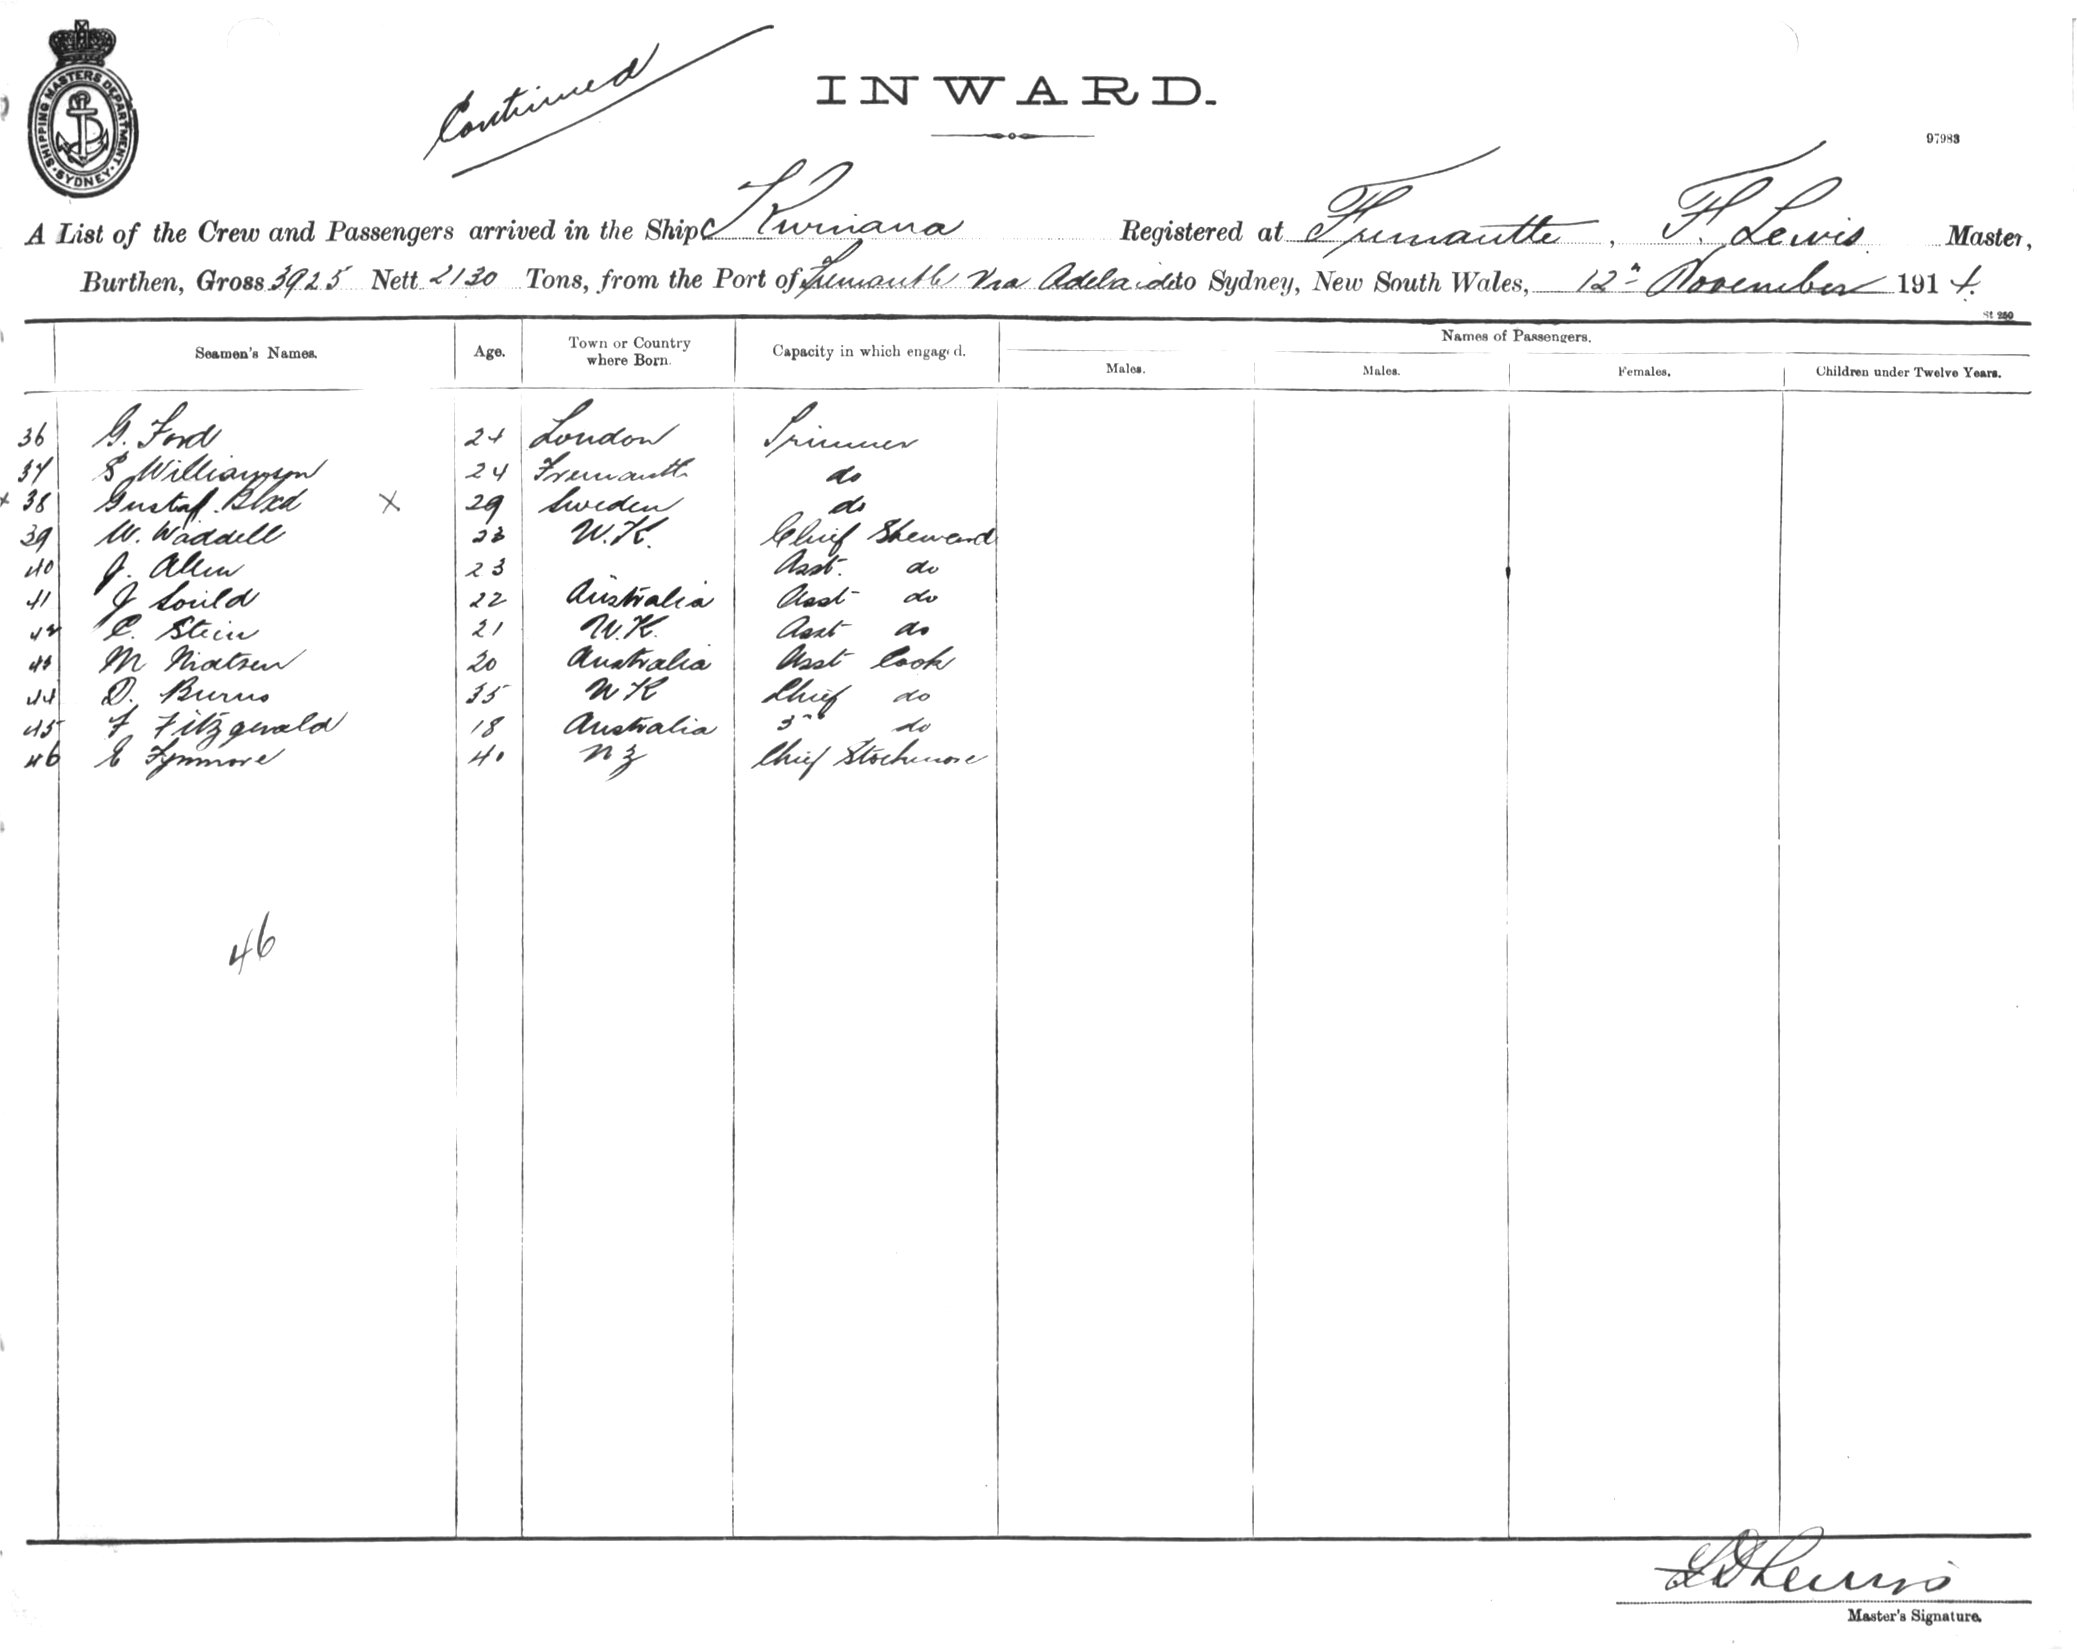 SHIPPING MASTERS DEPARTMENT
SYDNEY
Continued
INWARD.
97983
A List of the Crew and Passengers arrived in the Ship Kwinana Registered at Fremantle, F. Lewis Master,
Burthen, Gross 3925 Nett 2130 Tons, from the Port of Fremantle Via Adelaide to Sydney, New South Wales, 12th November 1914.
St 250
Seamen's Names. Age. Town or Country where Born. Capacity in which engaged. Names of Passengers.
Males. Males. Females. Children under Twelve Years.
36 G. Ford 24 London Trimmer
37 S Williamson 24 Fremantle do
x 38 Gustaf X 29 Sweden do
39 W. Waddell 33 U.K. Chief Steward
40 J. Allen 23 Asst. do
41 J 22 Australia Asst do
42 C. Stein 21 U.K. Asst do
43 M 20 Australia Asst Cook
44 D. Burns 35 U K Chief do
45 F Fitzgerald 18 Australia 3rd do
46 E Fynmore 40 N Z Chief
46
Lewis
Master's Signature.